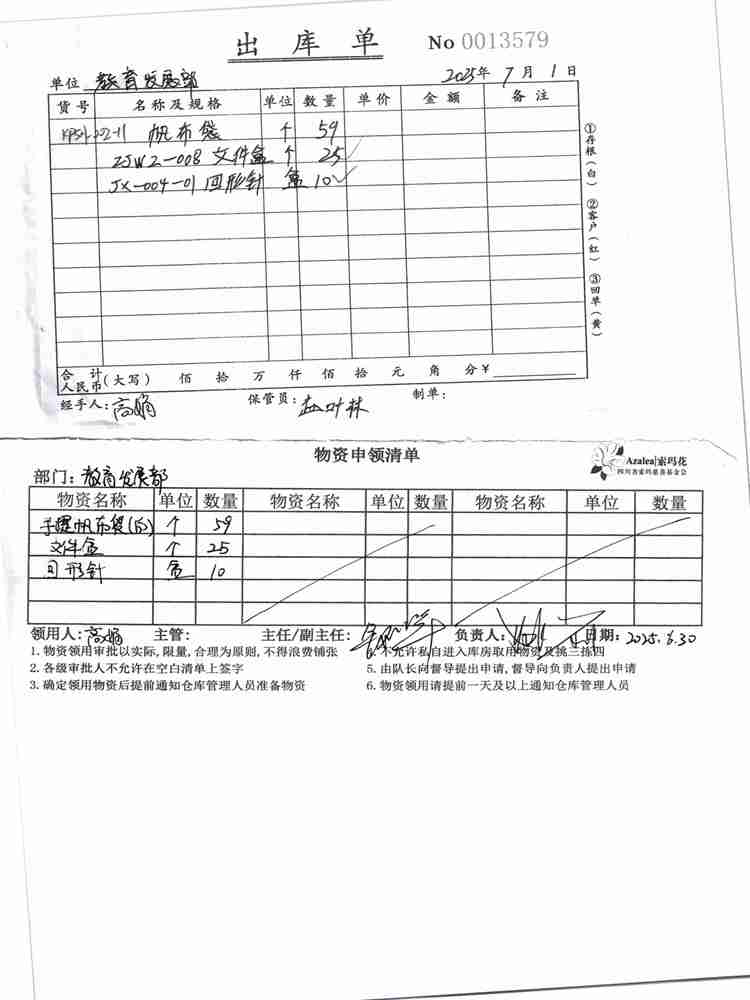 出库单 No 0013579
单位 教育发展部 2025年 7月 1日
货号 名称及规格 单位 数量 单价 金额 备注
帆布袋 个 59
ZJW2-008 文件盒 个 25
JX-004-01 回形针 盒 10
①存根(白) ②客户(红) ③回单(黄)
合计人民币(大写) 佰 拾 万 仟 佰 拾 元 角 分¥
经手人:高娟 保管员: 制单:
物资申领清单
Azalea|索玛花
四川省索玛慈善基金会
部门:教育发展部
物资名称 单位 数量 物资名称 单位 数量 物资名称 单位 数量
手提帆布袋 个 59
文件盒 个 25
回形针 盒 10
领用人:高娟 主管: 主任/副主任: 负责人: 日期: 2025.6.30
1.物资领用审批以实际,限量,合理为原则,不得浪费铺张
不允许私自进入库房取用物资及挑三拣四
2.各级审批人不允许在空白清单上签字
5.由队长向督导提出申请,督导向负责人提出申请
3.确定领用物资后提前通知仓库管理人员准备物资
6.物资领用请提前一天及以上通知仓库管理人员